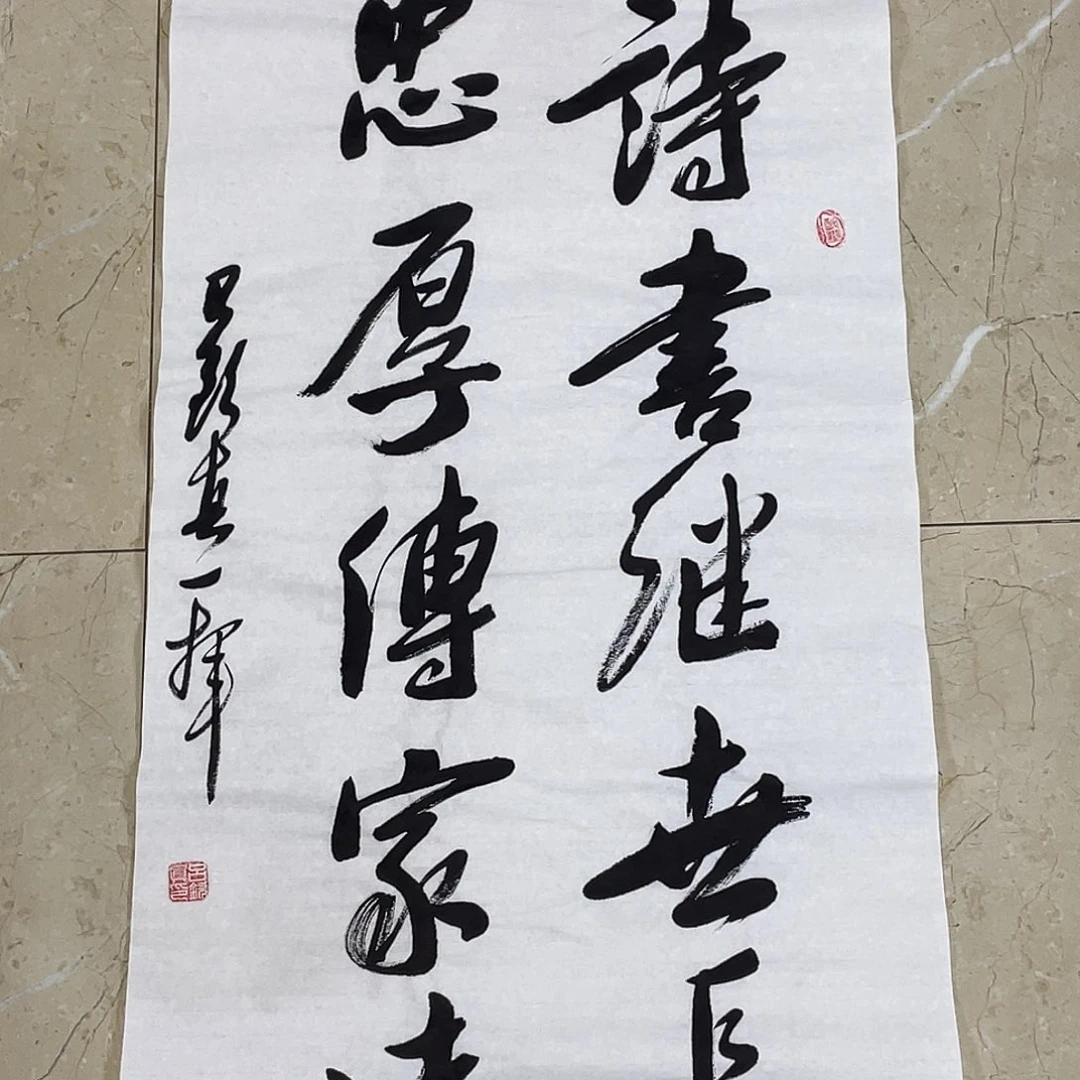 詩書继世
忠厚傳家
一揮